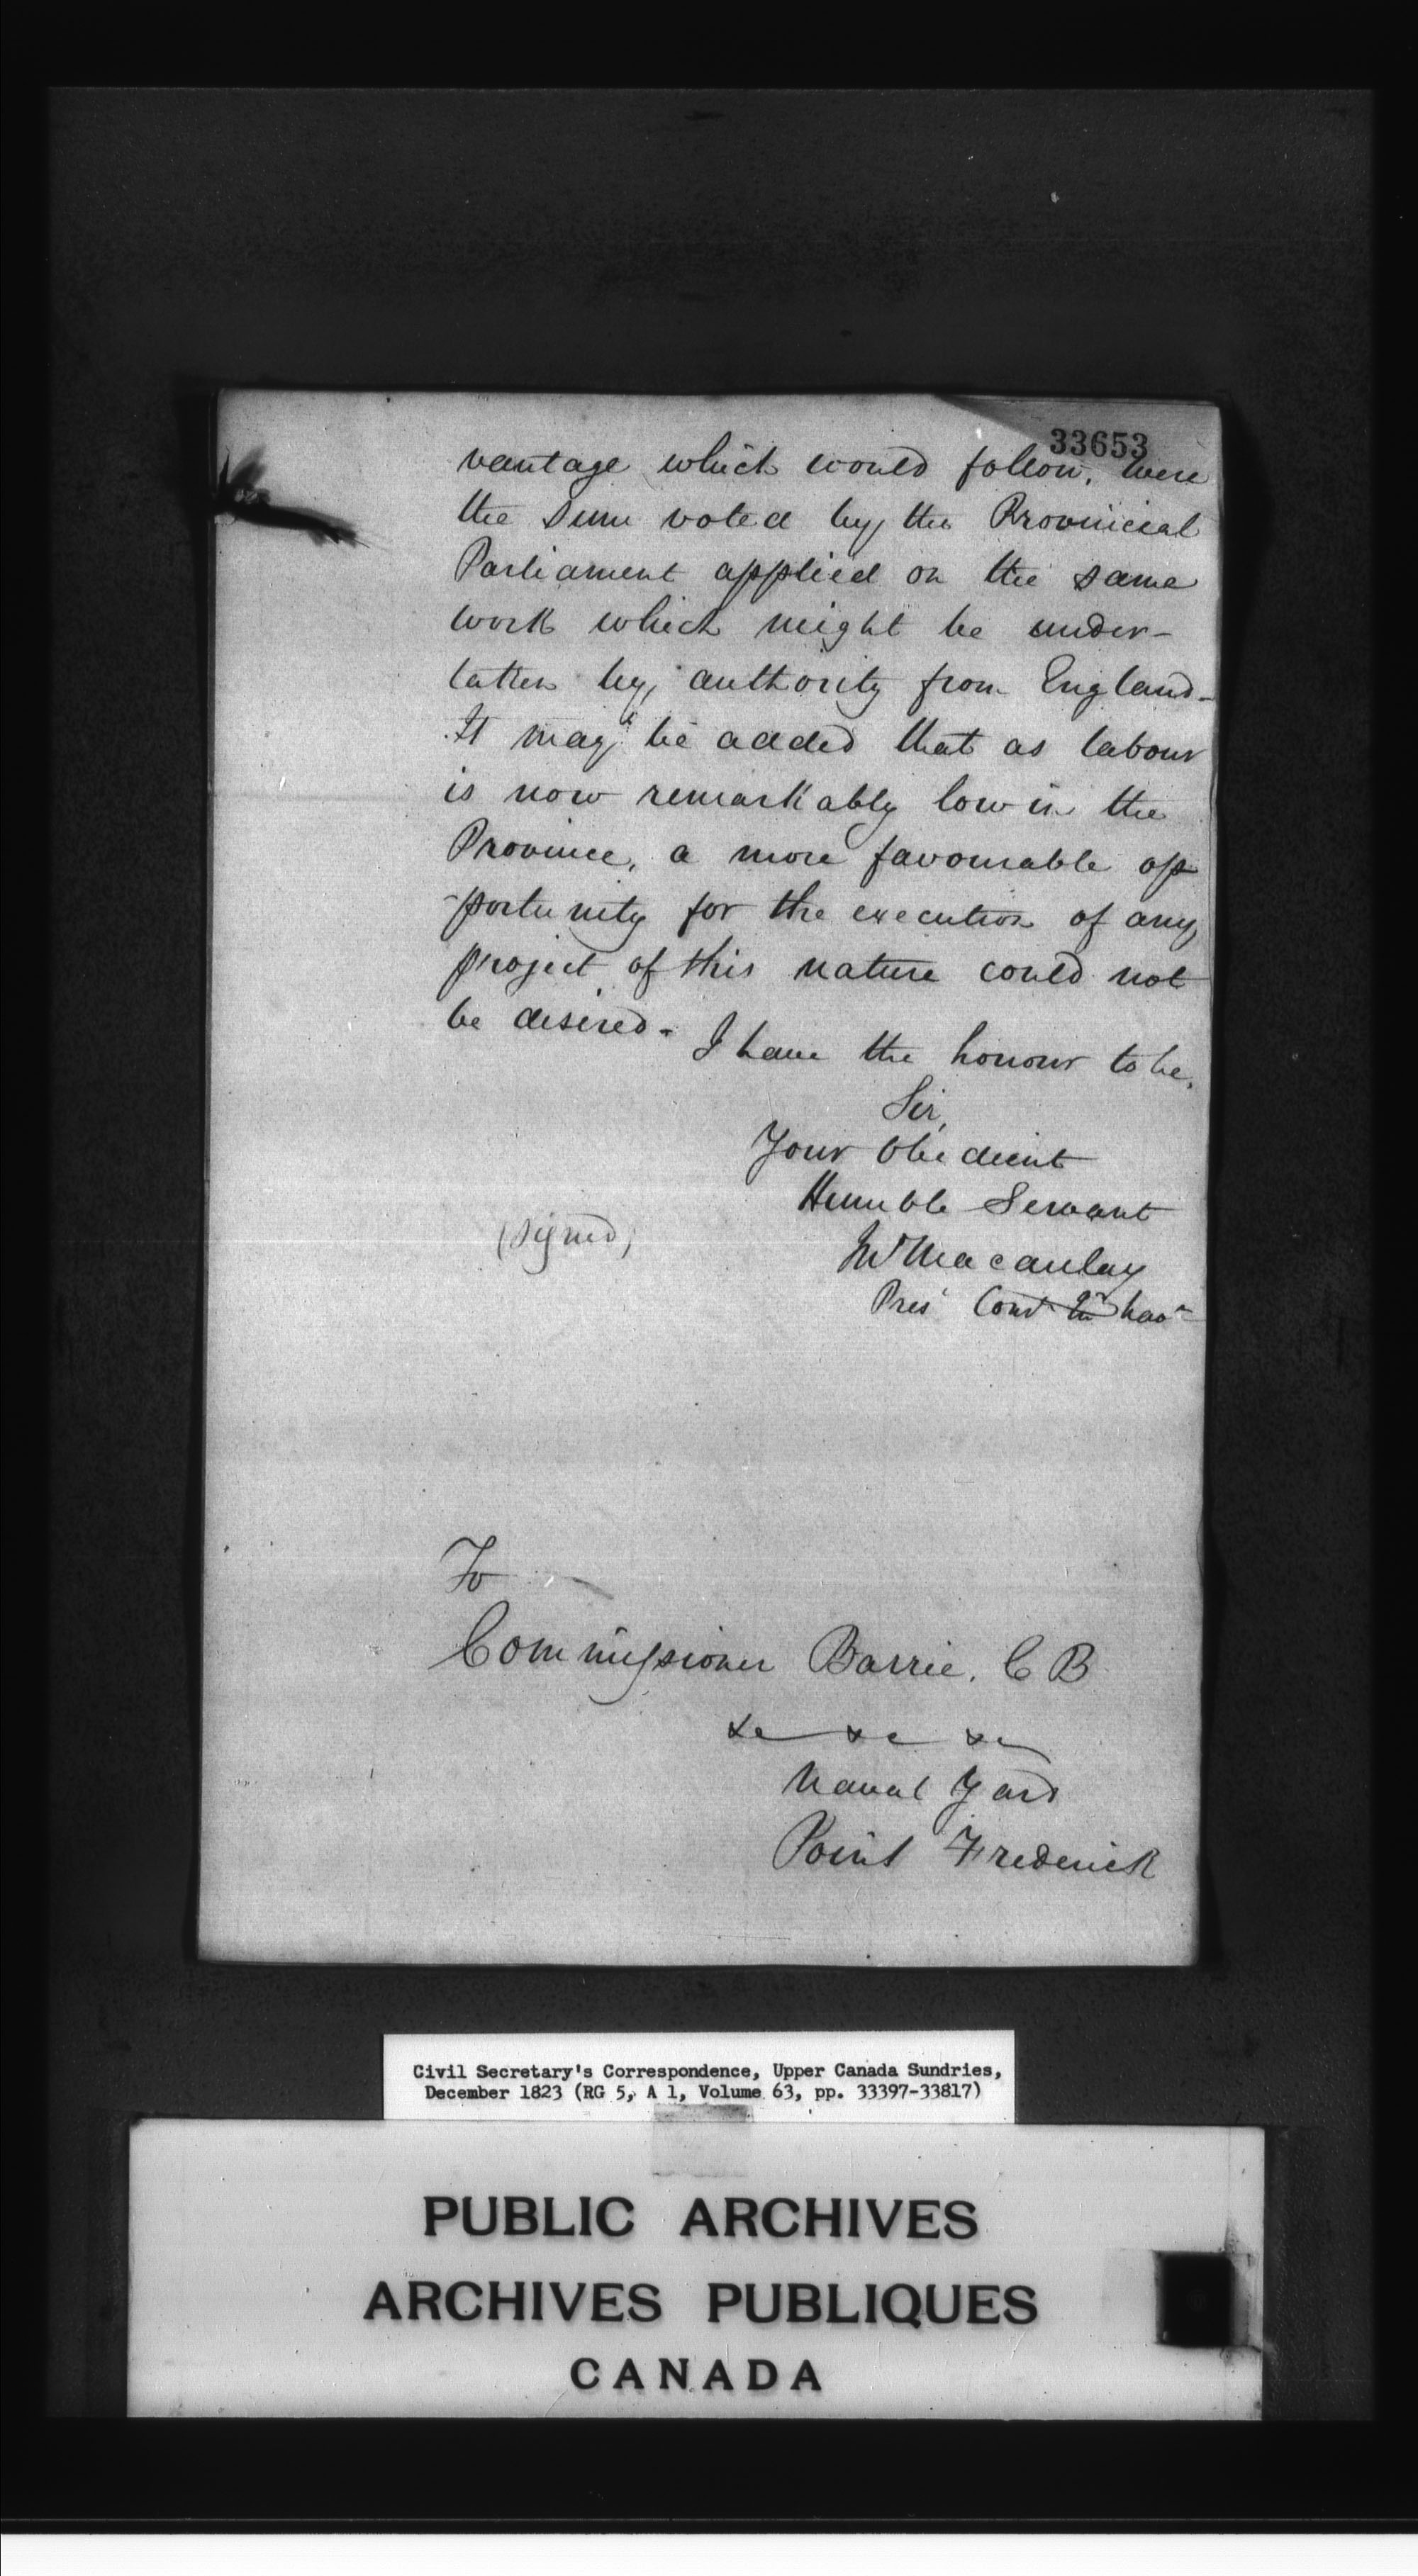 33653
vantage which would follow, were
the Sum voted by the Provincial
Parliament applied on the same
work which might be under-
taken by authority from England-
It may be added that as labour
is now remarkably low in the
Province, a more favourable op
-portunity for the execution of any
project of this nature could not
be desired-
I have the honour to be,
Sir,
Your Obedient
Humble Servant
(Signed)
Macaulay
Pres Com
To
Commissioner Barrie. C B
&c &c &c
Naval Yard
Point Frederick
Civil Secretary's Correspondence, Upper Canada Sundries,
December 1823 (RG 5, A 1, Volume 63, pp. 33397-33817)
PUBLIC ARCHIVES
ARCHIVES PUBLIQUES
CANADA